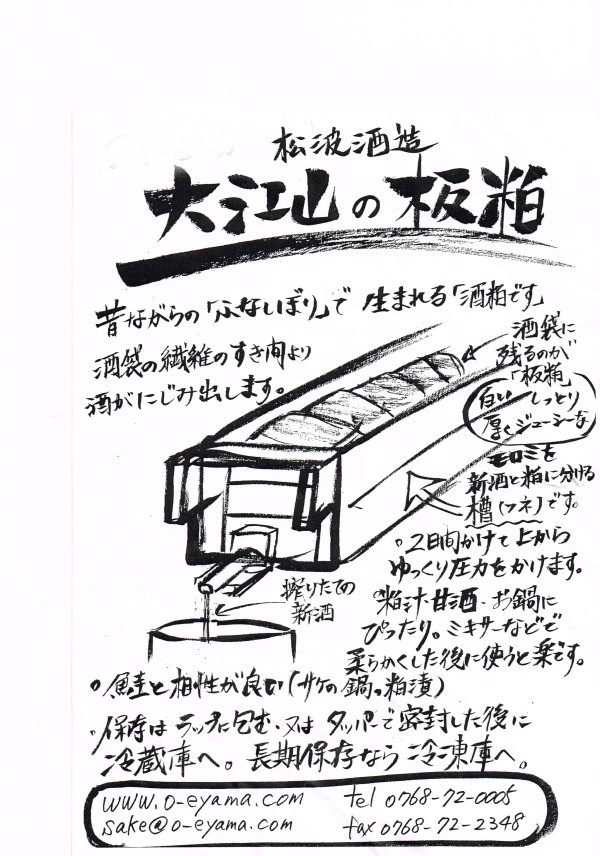 松波酒造
大江山の板粕
昔ながらの「ふないぼり」で 生まれる「酒粕です」
酒袋の繊維のすき間より
酒がにじみ出します。
酒袋に
残るのが
「板粕」
白い しっとり
厚くジューシーな
モロミを
新酒と粕に分ける
槽(フネ)です。
。2日間かけて上から
ゆっくり圧力をかけます。
搾りたての
新酒
粕汁・甘酒・お鍋に
ぴったり。ミキサーなどで
柔らかくした後に使うと楽です。
。魚圭と相性が良い(サケの鍋。粕漬)
。保存はラップに包む・又はタッパーで密封した後に
冷蔵庫へ。長期保存なら冷凍庫へ。
www.o-eyama.com tel 0768-72-0005
sake@o-eyama.com fax 0768-72-2348